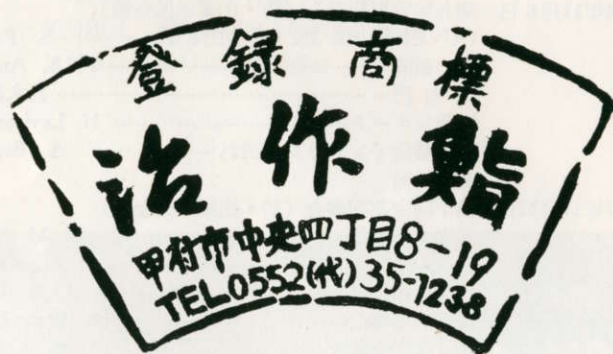 登録商標
治作鮨
甲府市中央四丁目8-19
TEL 0552(代)35-7238